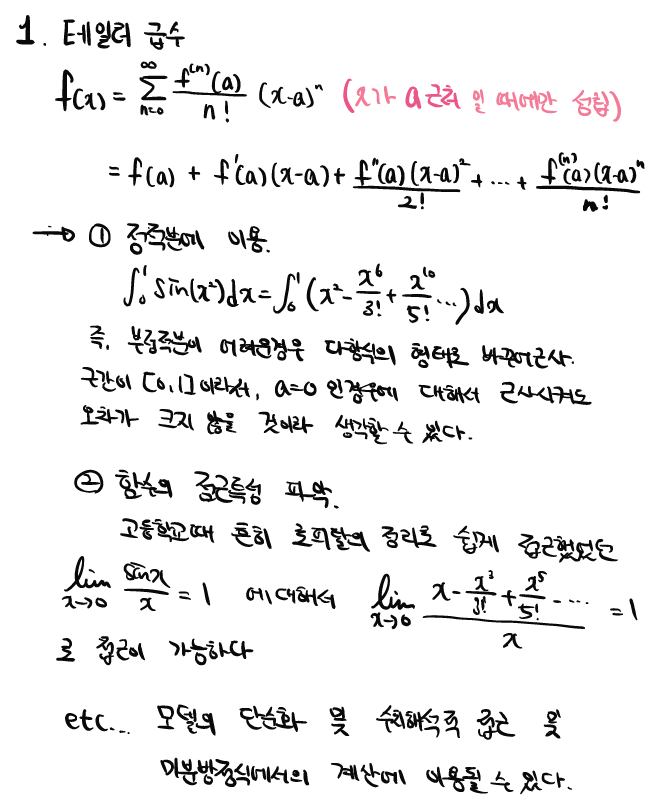 1. 테일러 급수
f(x) = ∑_{n=0}^{∞} f^{(n)}(a)/n! (x-a)^n (x가 a근처 일 때에만 성립)
= f(a) + f'(a)(x-a) + f''(a)(x-a)^2/2! + ... + f^{(n)}(a)(x-a)^n/n!
→ ① 정적분에 이용.
∫_0^1 sin(x^2)dx = ∫_0^1 (x^2 - x^6/3! + x^10/5! ...) dx
즉, 부정적분이 어려운경우 다항식의 형태로 바꾸어근사.
구간이 [0,1]이라서, a=0 인경우에 대해서 근사시켜도
오차가 크지 않을 것이라 생각할 수 있다.
② 함수의 점근특성 파악.
고등학교때 흔히 로피탈의 정리로 쉽게 접근했었던
lim_{x→0} sinx/x = 1 에 대해서 lim_{x→0} (x - x^3/3! + x^5/5! - ...)/x = 1
로 접근이 가능하다
etc... 모델의 단순화 및 수치해석적 접근 및
미분방정식에서의 계산에 이용될 수 있다.